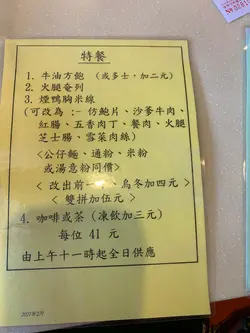 特餐
1. 牛油方飽 (或多士，加二元)
2. 火腿奄列
3. 煙鴨胸米線
(可改為 :- 仿鮑片、沙爹牛肉、
紅腸、五香肉丁、餐肉、火腿
芝士腸、雪菜肉絲)
<公仔麵、通粉、米粉
或湯意粉同價>
< 改出前一丁、烏冬加四元 >
< 雙拼加伍元 >
4. 咖啡或茶 (凍飲加三元)
每位 41 元
由上午十一時起全日供應
2021年2月